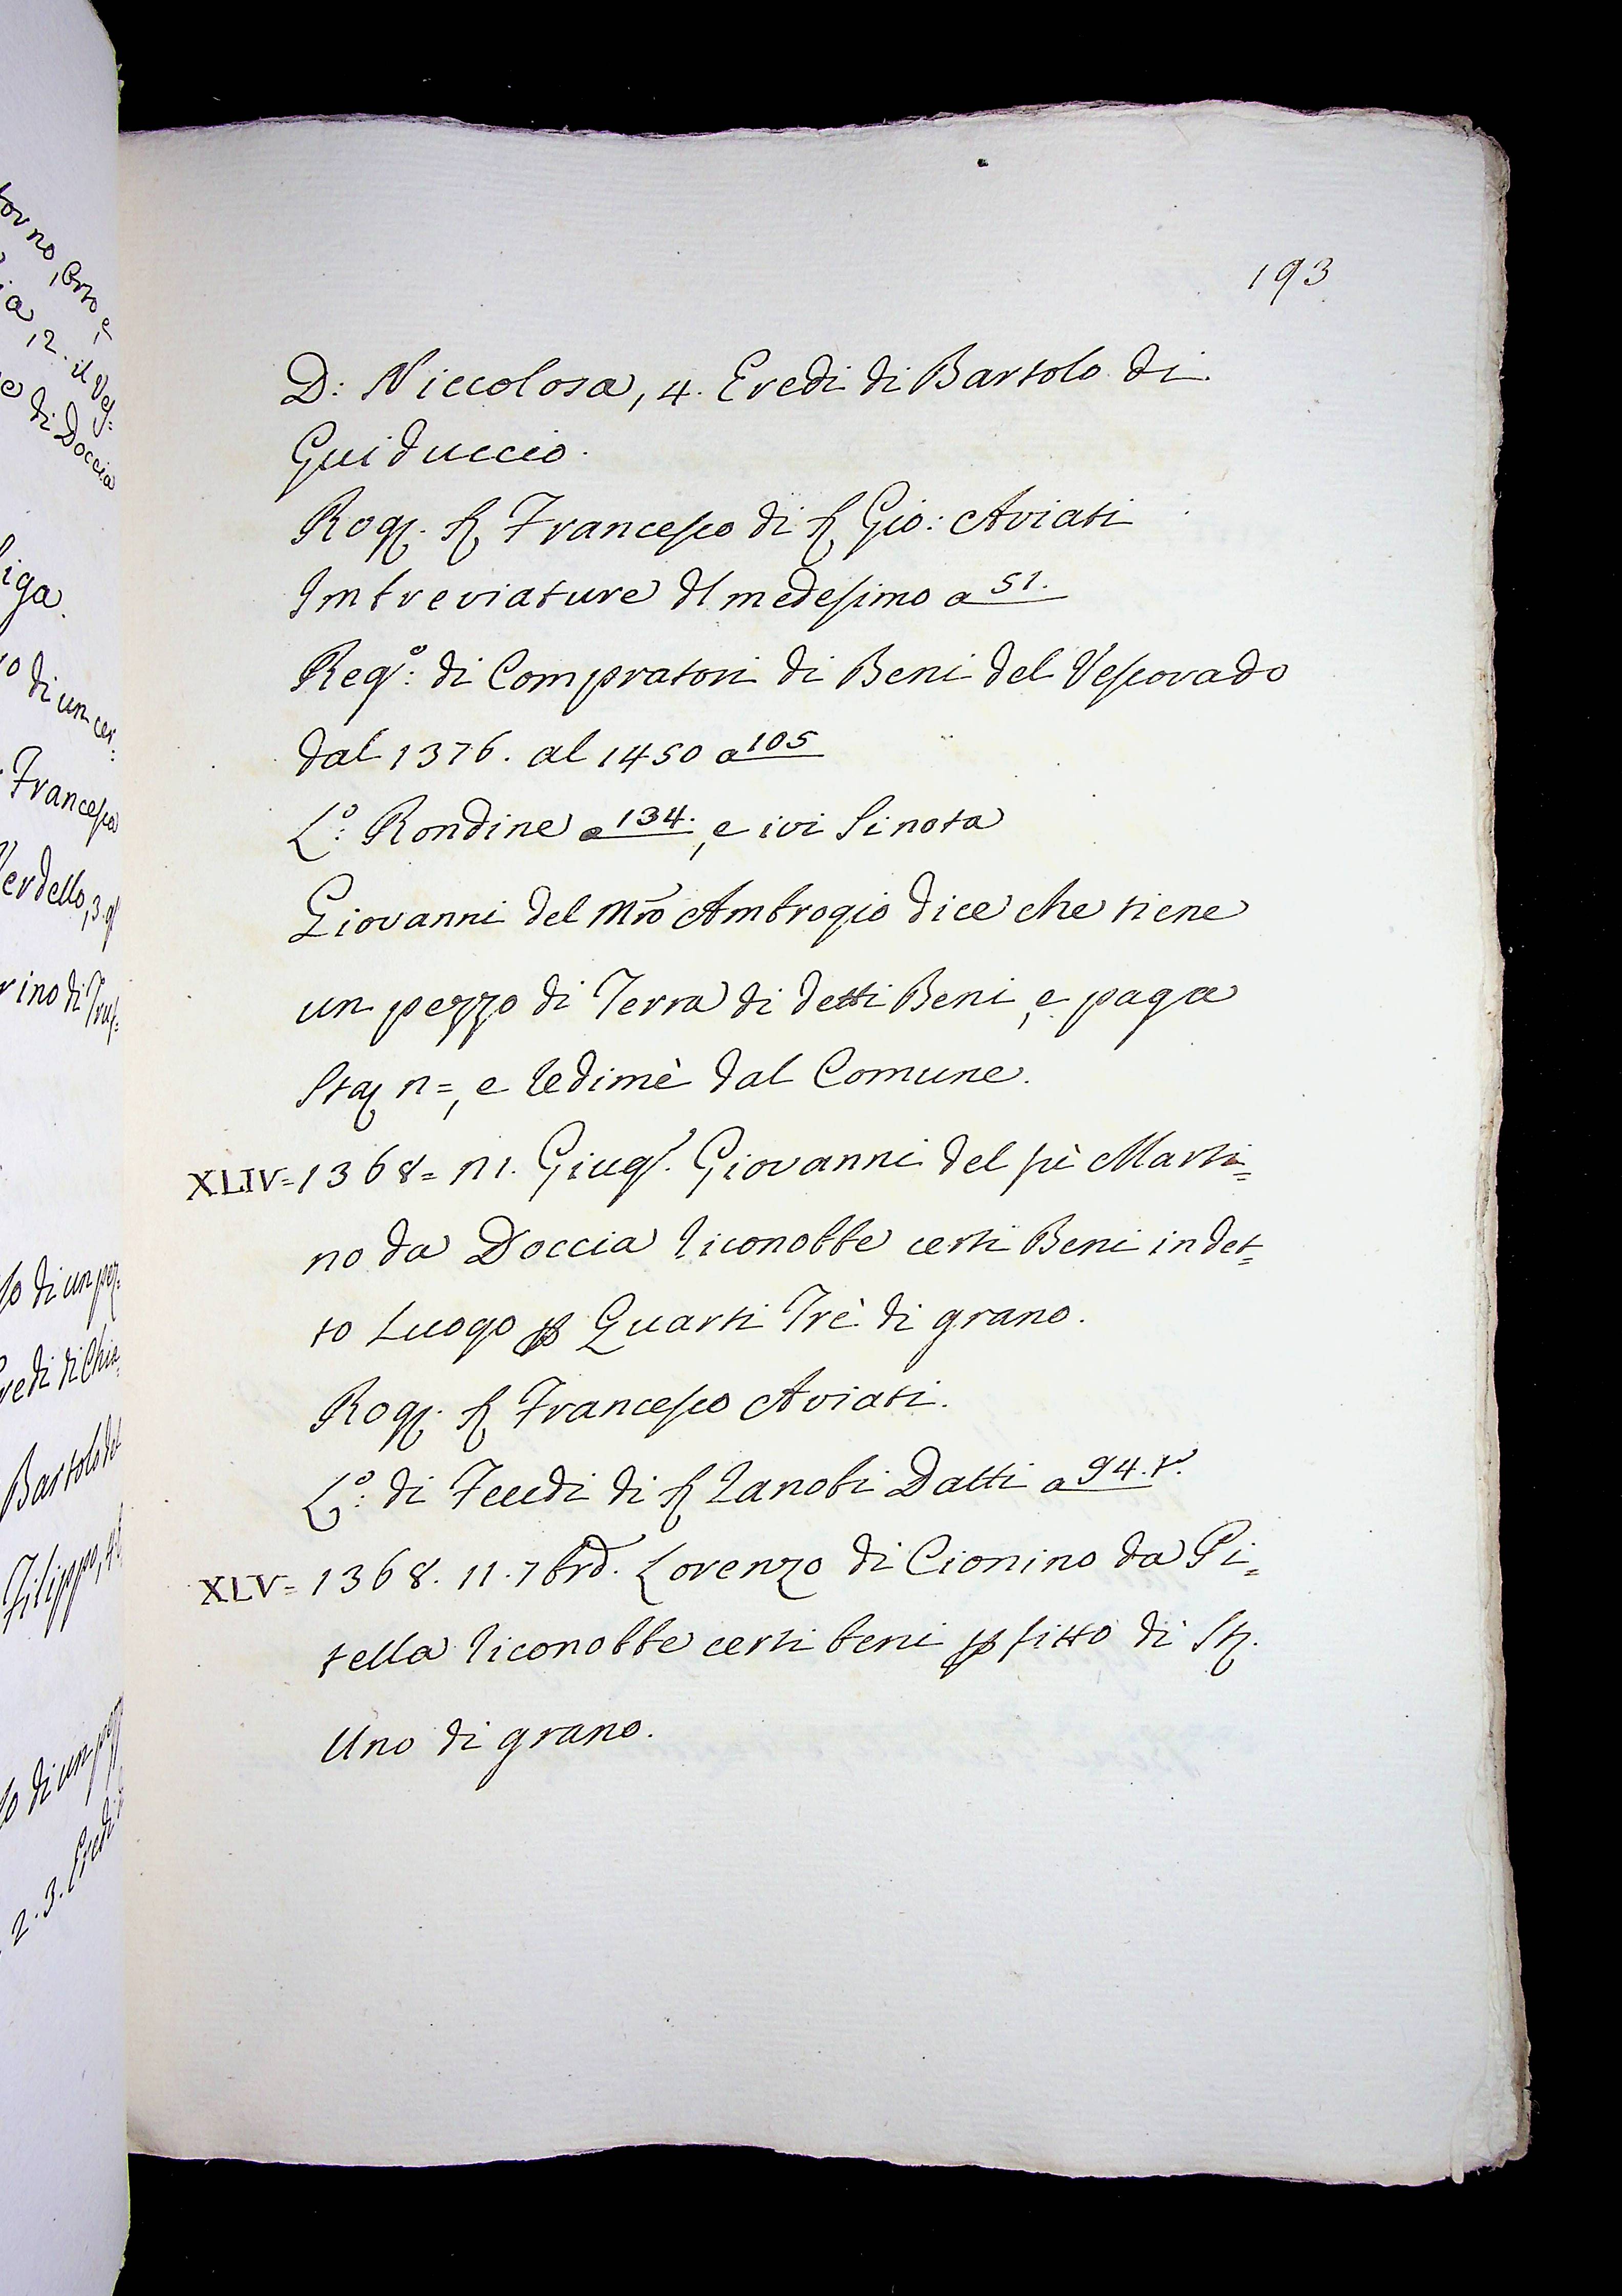 193
D: Niccolosa, 4. Eredi di Bartolo di
Guiduccio.
Rog. S. Francesco di S. Gio: Aviati
Imbreviature dl medesimo a 51.
Reg.º: di Compratori di Beni del Vescovado
dal 1376. al 1450 a 105
L.º: Rondine a 134., e ivi Si nota
Giovanni del Mro Ambrogio dice che tiene
un pezzo di Terra di detti Beni, e paga
Sta n=, e redimè dal Comune.
XLIV= 1368= 11. Giug. Giovanni del fù Marti=
no da Doccia riconobbe certi Beni in det=
to Luogo p Quarti Trè di grano.
Rog. S. Francesco Aviati.
L.º: di Feudi di S. Zanobi Datti a 94. t.
XLV= 1368. 11. 7brd. Lorenzo di Cionino da Pi=
tella riconobbe certi beni p fitto di St.
Uno di grano.
torno,
ia, 2. il Ves=
e di Doccia
liga.
di un cer=
Francesco
Verdello, 3.
rino di
di un pez=
redi di Chia=
Bartolo
Filippo,
lo di un
2. 3. Eredi